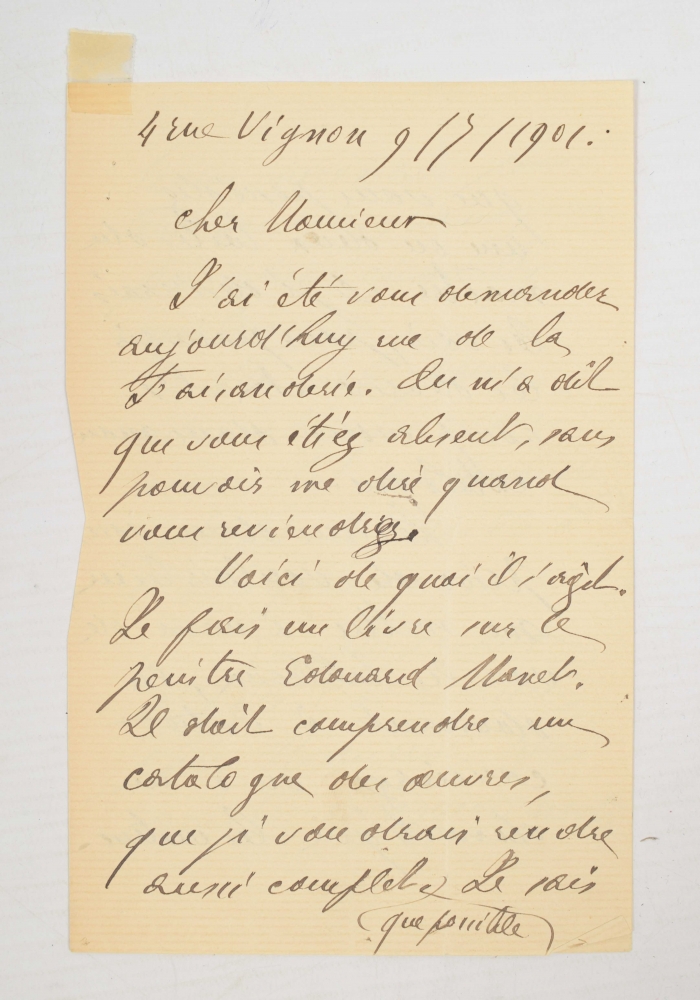 4 rue Vignon 9/5/1901.
cher Monsieur
J'ai été vous demander
aujourd'huy rue de la
Faisanderie. On m'a dit
que vous étiéz absent, sans
pouvoir me dire quand
vous reviendriez.
Voici de quoi il s'agit.
Je fais un livre sur le
peintre Edouard Manet.
Il doit comprendre un
catalogue des œuvres,
que je voudrais rendre
aussi complet Je sais
que possible